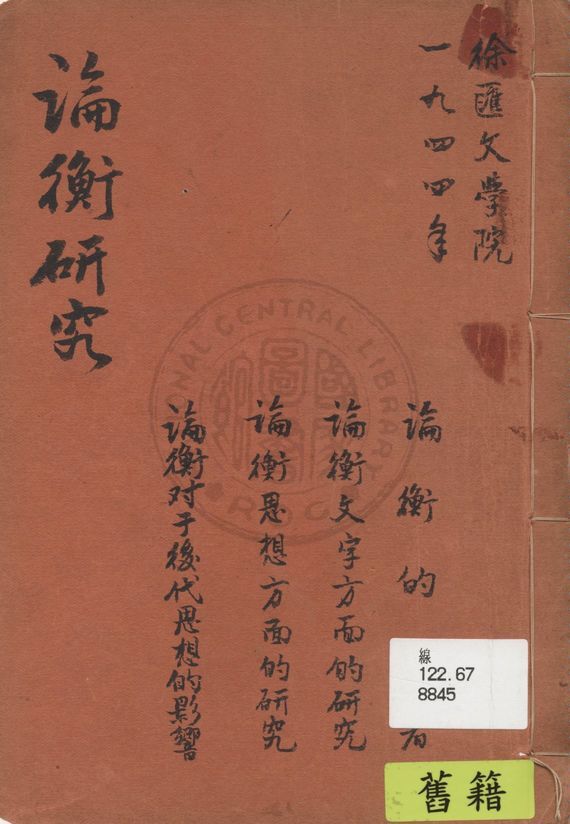 徐匯文學院
一九四四年
論衡的
論衡文字方面的研究
論衡思想方面的研究
論衡对于後代思想的影響
論衡研究
線
122.67
8845
舊籍
NATIONAL CENTRAL LIBRARY
R.O.C.